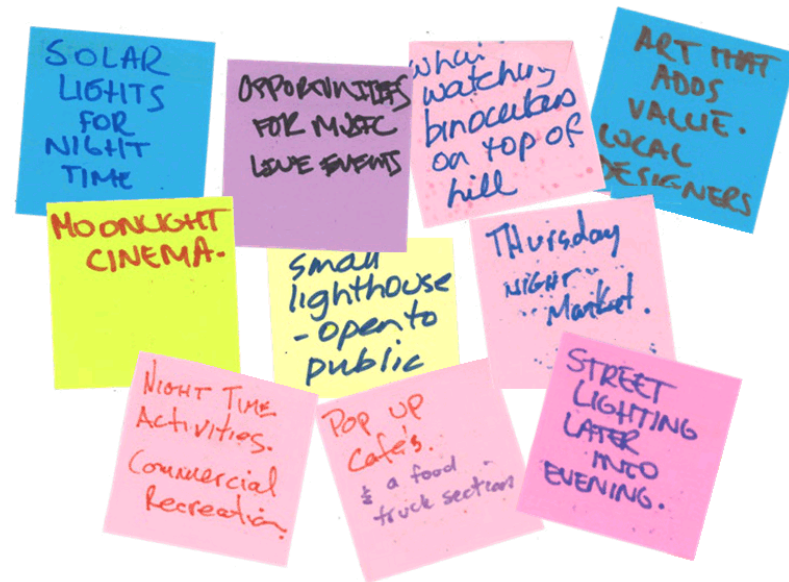 SOLAR
LIGHTS
FOR
NIGHT
TIME
OPPORTUNITIES
FOR MUSIC
LIVE EVENTS
watching
binoculars
on top of
hill
ART THAT
ADDS
VALUE.
LOCAL
DESIGNERS
MOONLIGHT
CINEMA.
small
lighthouse
- open to
public
THursday
NIGHT
Market.
NIGHT TIME
Activities.
Commercial
Recreation.
POP UP
Cafe's.
& a food
truck section
STREET
LIGHTING
LATER
INTO
EVENING.